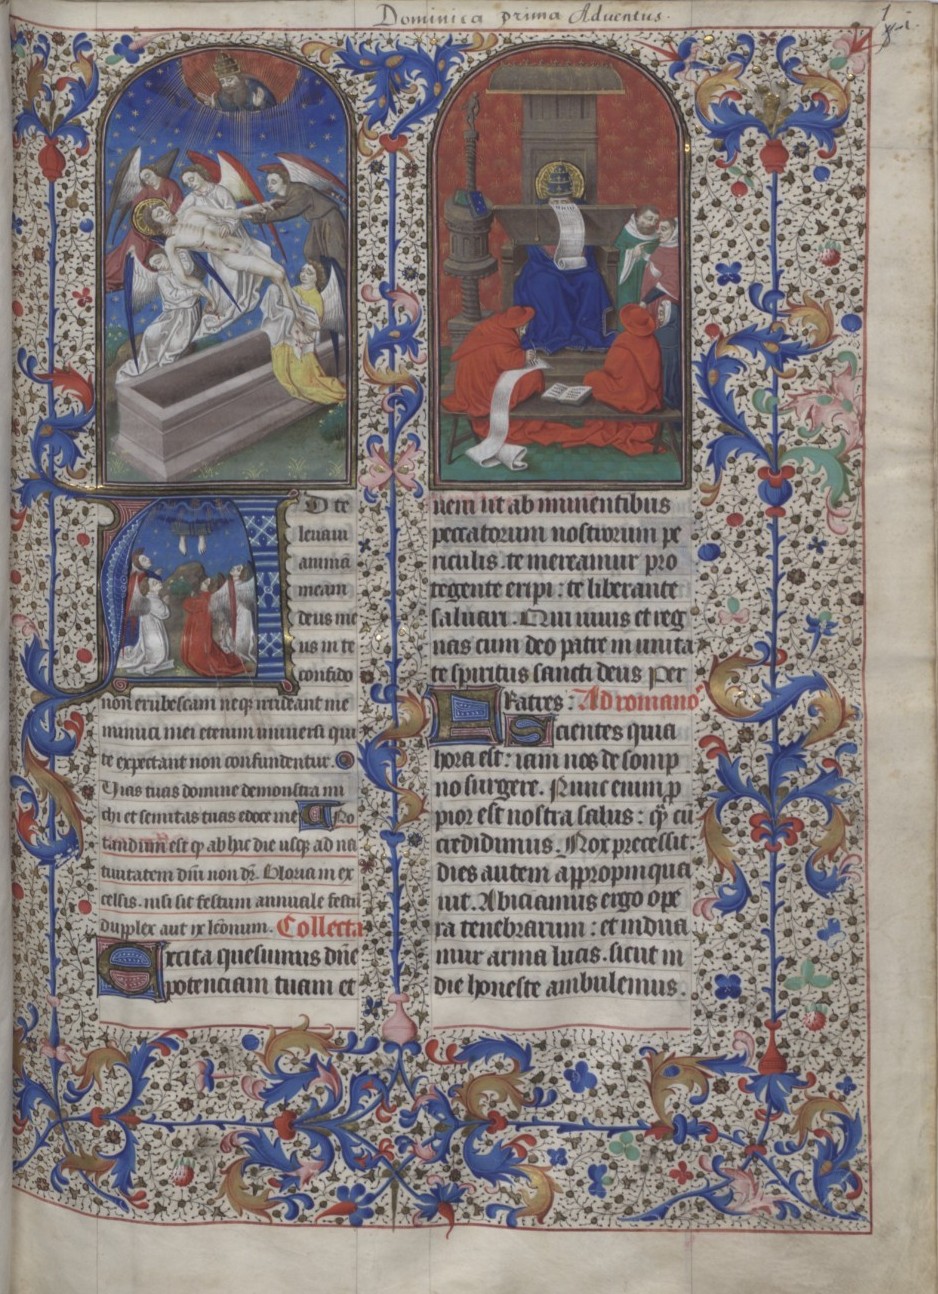 Dominica prima Adventus.
1
D te
levavi
animā
meam
deus me
us in te
confido
non erubescam neqꝫ irrideant me
inimici mei etenim universi qui
te expectant non confundentur.
Vias tuas domine demonstra mi
chi et semitas tuas edoce me
est ꝙ ab hac die usqꝫ ad na
tivitatem dñi non dr̃. Gloria in ex
celsis. nisi sit festum annuale festū
dupplex aut ix lc̃onum. Collecta
Excita quesumus dñe
potenciam tuam et
veni ut ab iminentibus
peccatorum nostrorum pe
riculis. te mereamur pro
tegente eripi: te liberante
salvari. Qui vivis et reg
nas cum deo patre in unita
te spiritus sancti deus Per
Fratres: Ad romanos
Scientes quia
hora est: iam nos de somp
no surgere. Nunc enim ꝓ
pior est nostra salus: ꝙ cū
credidimus. Nox precessit:
dies autem appropinqua
vit. Abiciamus ergo ope
ra tenebrarum: et indua
mur arma lucis. sicut in
die honeste ambulemus.